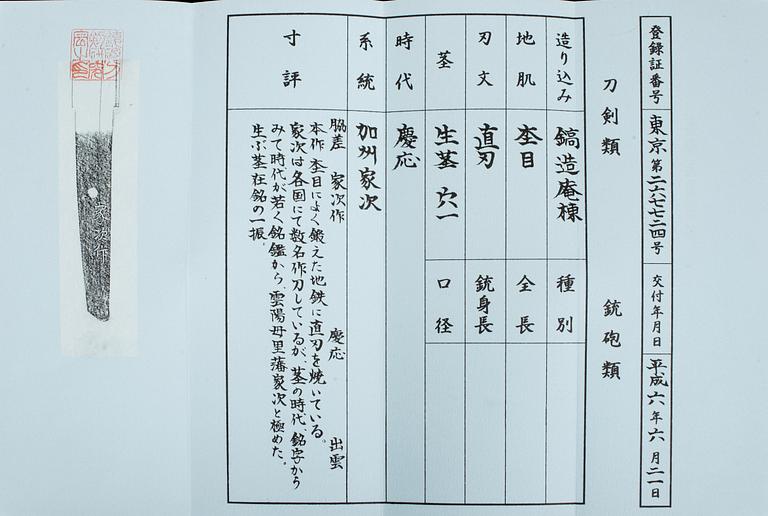 登録証番号 東京第二六七七二四号 交付年月日 平成六年六月二一日
刀剣類 銃砲類
造り込み 鎬造庵棟 種別
地肌 杢目 全長
刃文 直刃 銃身長
茎 生茎 穴一 口径
時代 慶応
系統 加州家次
寸評
脇差 家次作 慶応 出雲
本作 杢目によく鍛えた地鉄に直刃を焼いている。
家次は各国にて数名作刀しているが、茎の時代、銘字から
みて時代が若く銘鑑から、雲陽母里藩家次と極めた。
生ぶ茎在銘の一振。
家次作